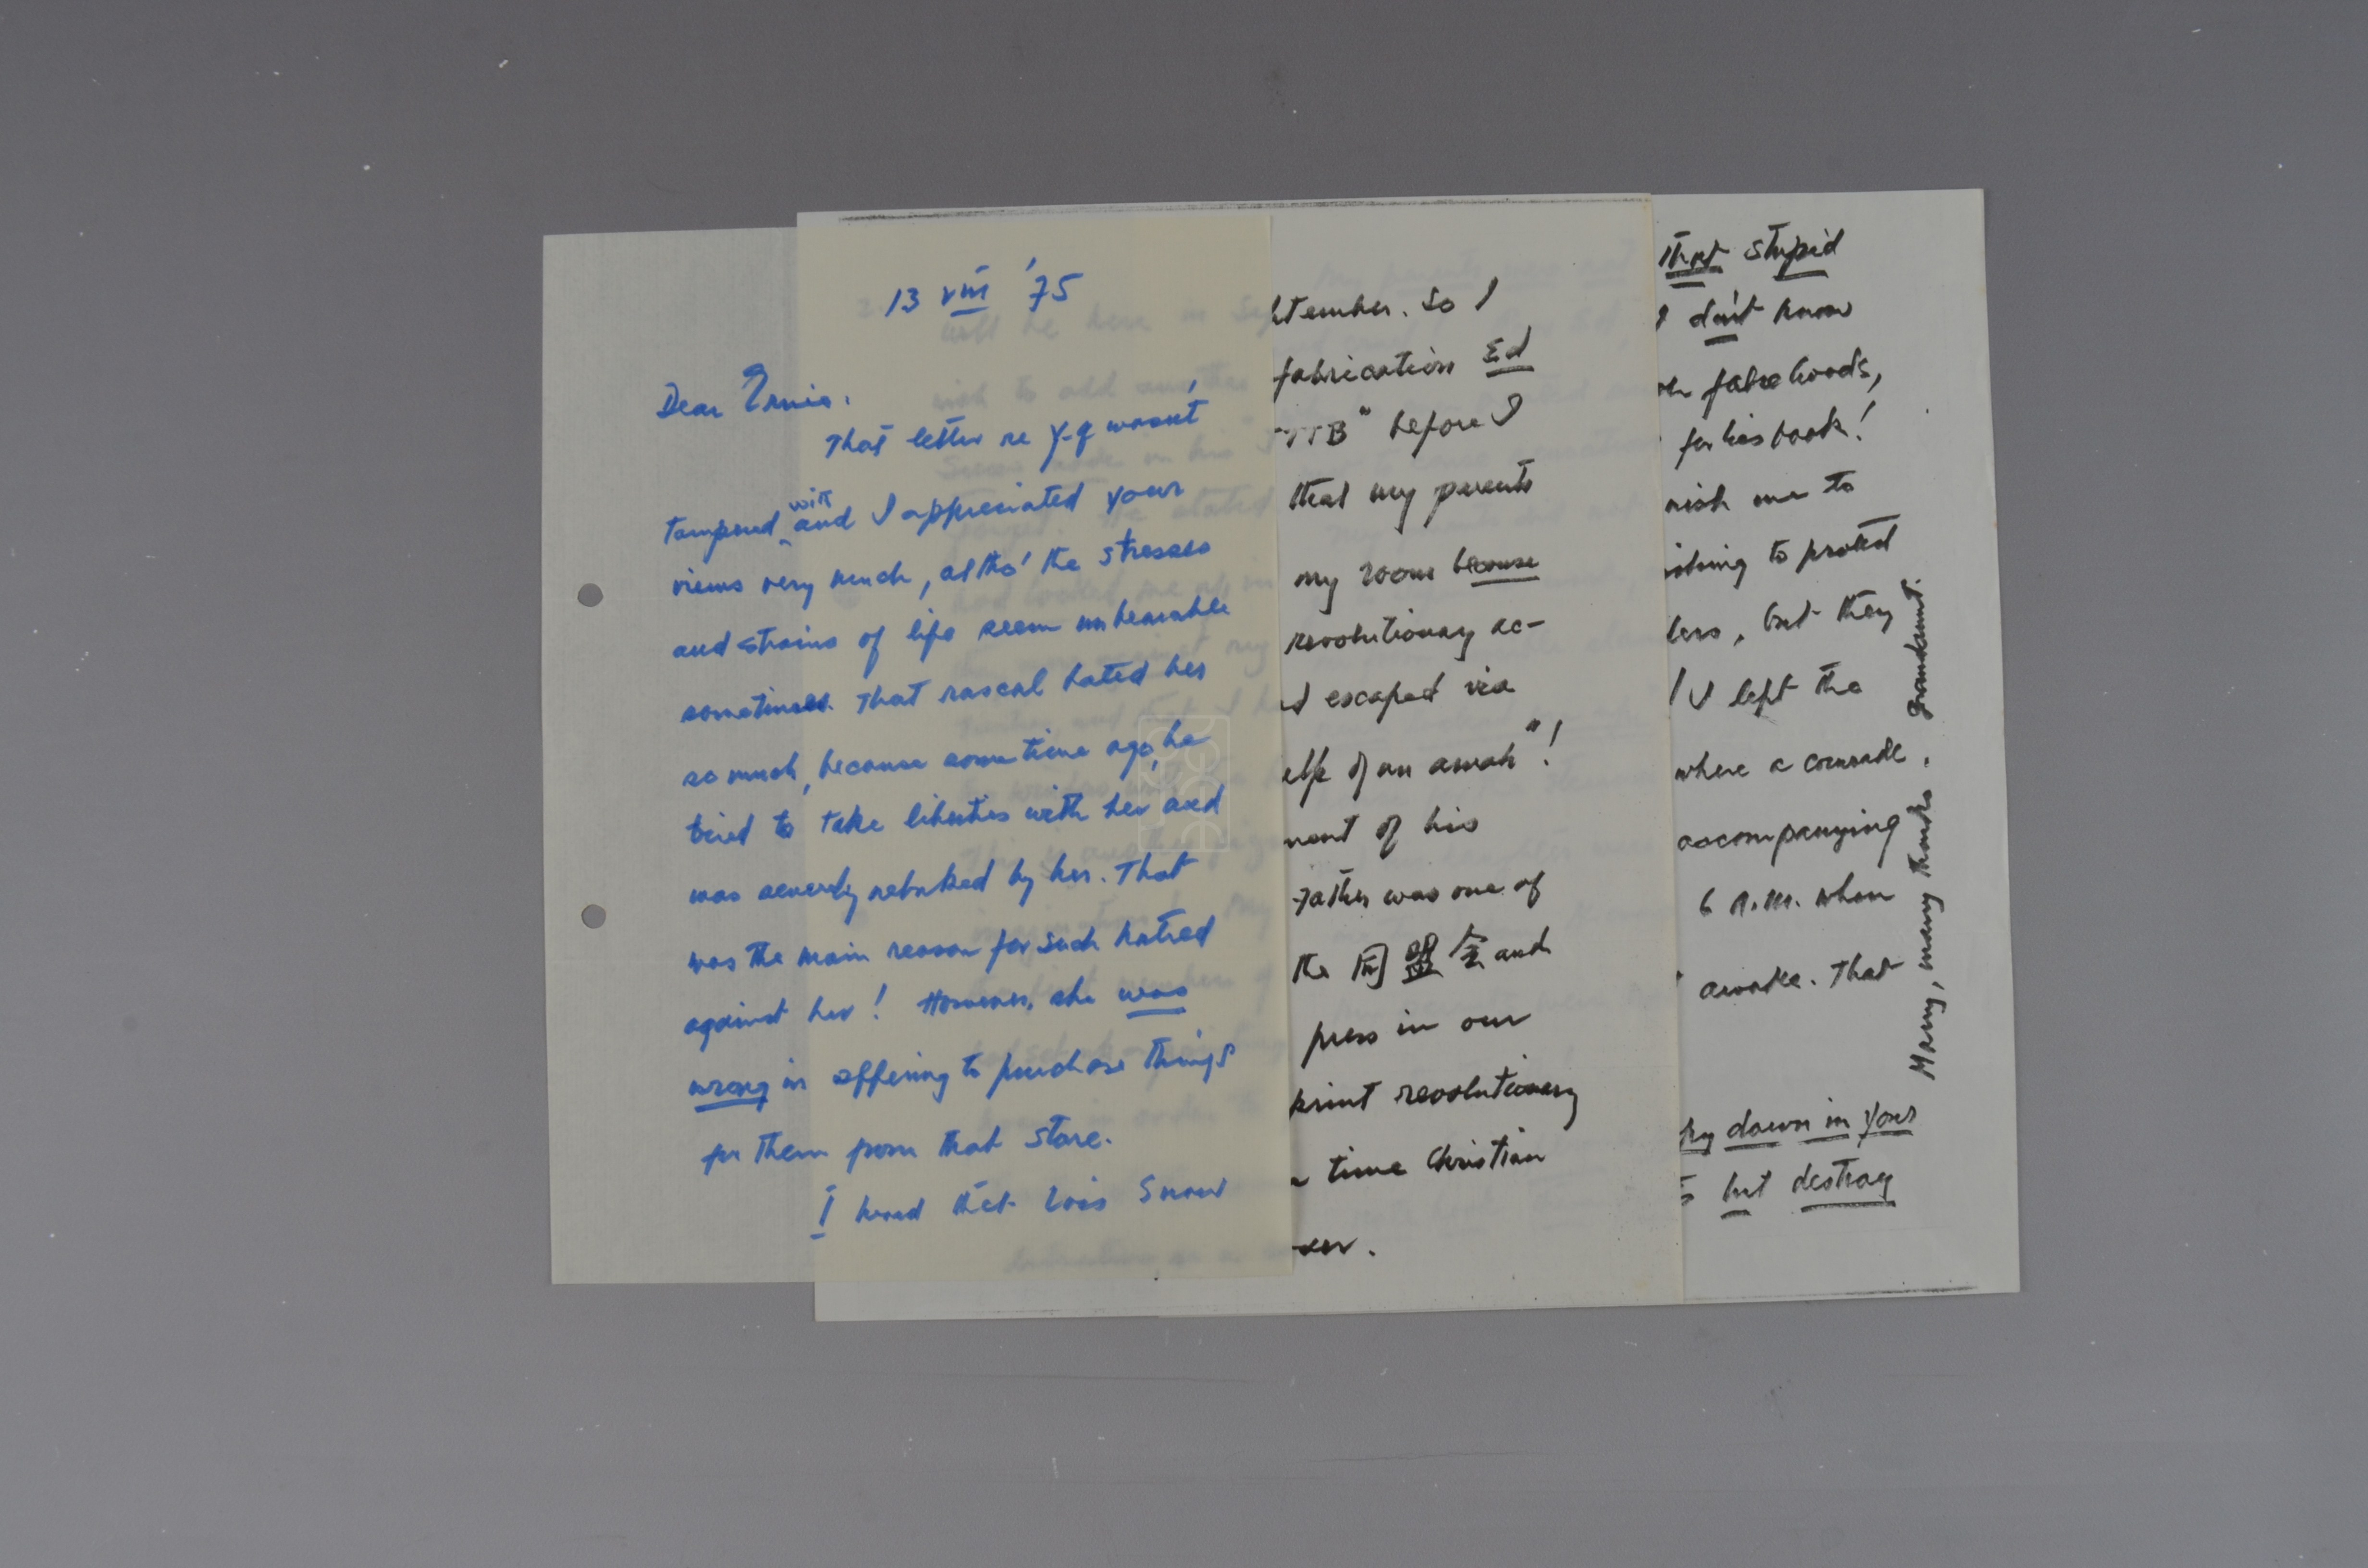 13 VIII '75
Dear Ernie,
That letter re Y-q wasn't
tampered with and I appreciated your
views very much, altho' the stresses
and strains of life seem unbearable
sometimes. That rascal hated her
so much, because some time ago, he
tried to take liberties with her and
was severely rebuked by her. That
was the main reason for such hatred
against her! However, she was
wrong in offering to purchase things
for them from that store.
I heard that Lois Snow
tember. So I
fabrication Ed
TTB" before I
that my parents
my room because
revolutionary ac-
escaped via
elp of an amah"!
ment of his
father was one of
the 同盟会 and
press in our
print revolutionary
time Christian
ker.
that stupid
I don't know
falsehoods,
for his book!
wish me to
ishing to protect
lers, but they
I left the
where a comrade,
accompanying
6 A.M. when
awake. That
down in your
but destroy
Many, many thanks. Grandaunt.